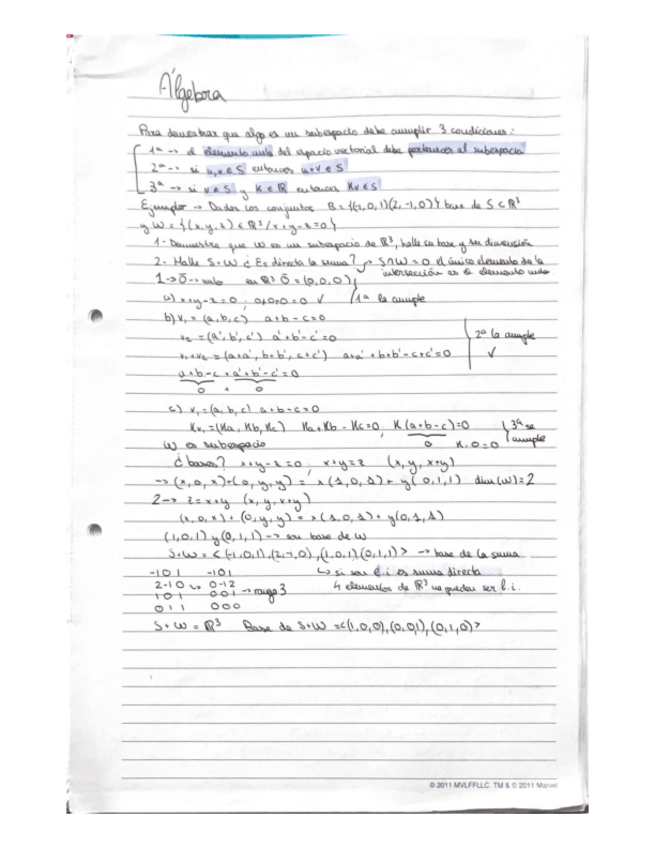 Álgebra
Para demostrar que algo es un subespacio debe cumplir 3 condiciones:
1ª → el elemento nulo del espacio vectorial debe pertenecer al subespacio
2ª → si u,v ∈ S entonces u+v ∈ S
3ª → si v ∈ S y K ∈ R entonces Kv ∈ S
Ejemplo → Dados los conjuntos B = {(-1,0,1)(2,-1,0)} base de S ⊂ R³
y W = {(x,y,z) ∈ R³/x+y-z=0}
1- Demuestre que W es un subespacio de R³, halle su base y su dimensión
2- Halle S+W ¿Es directa la suma? → S∩W = 0 el único elemento de la
intersección es el elemento nulo
1→ō→nulo en R³ ō = (0,0,0)
a) x+y-z=0; 0+0+0=0 ✓ 1ª la cumple
b) v₁ = (a,b,c) a+b-c=0
v₂ = (a',b',c') a'+b'-c'=0 2ª la cumple
v₁+v₂ = (a+a', b+b', c+c') a+a'+b+b'-c+c'=0 ✓
a+b-c + a'+b'-c'=0
0 + 0
c) v₁ = (a,b,c) a+b-c=0
Kv₁ = (Ka, Kb, Kc) Ka+Kb-Kc=0; K(a+b-c)=0 3ª se cumple
W es subespacio 0 K·0=0
¿bases? x+y-z=0; x+y=z (x,y,x+y)
→ (x,0,x)+(0,y,y) = x(1,0,1)+y(0,1,1) dim(W)=2
2→ z=x+y (x,y,x+y)
(x,0,x)+(0,y,y) = x(1,0,1)+y(0,1,1)
(1,0,1) y (0,1,1) → son base de W
S+W = <(-1,0,1),(2,-1,0),(1,0,1)(0,1,1)> → base de la suma
-1 0 1 -1 0 1 ↳ si son l.i es suma directa
2 -1 0 ↪ 0 -1 2 4 elementos de R³ no pueden ser l.i.
1 0 1 0 0 1 → rango 3
0 1 1 0 0 0
S+W = R³ Base de S+W = <(1,0,0),(0,0,1),(0,1,0)>
© 2011 MVLFFLLC. TM & © 2011 Marvel